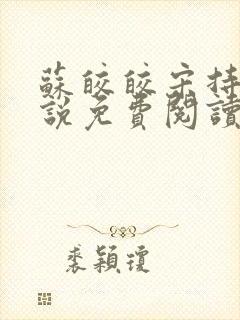 蘇皎皎宋持
說免費閱讀
裘穎瓊